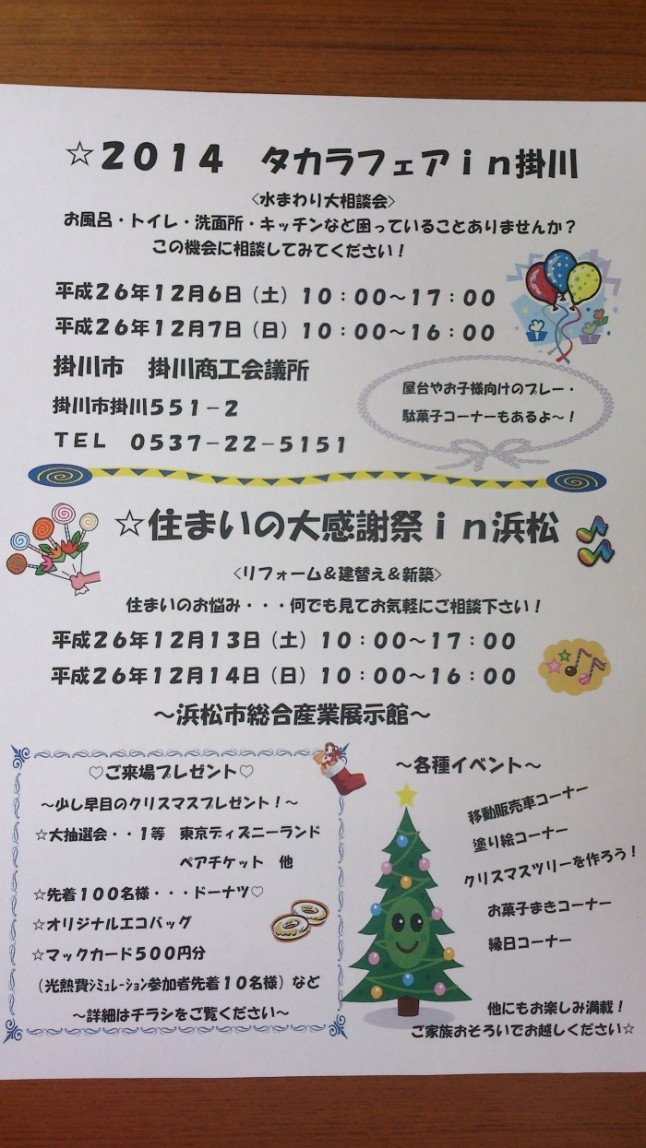 ☆2014 タカラフェアin掛川
<水まわり大相談会>
お風呂・トイレ・洗面所・キッチンなど困っていることありませんか？
この機会に相談してみてください！
平成26年12月6日（土）10：00～17：00
平成26年12月7日（日）10：00～16：00
掛川市 掛川商工会議所
掛川市掛川551－2
TEL 0537－22－5151
屋台やお子様向けのプレー・
駄菓子コーナーもあるよ～！
☆住まいの大感謝祭in浜松
<リフォーム＆建替え＆新築>
住まいのお悩み・・・何でも見てお気軽にご相談下さい！
平成26年12月13日（土）10：00～17：00
平成26年12月14日（日）10：00～16：00
～浜松市総合産業展示館～
♡ご来場プレゼント♡
～少し早目のクリスマスプレゼント！～
☆大抽選会・・1等 東京ディズニーランド
ペアチケット 他
☆先着100名様・・・ドーナツ♡
☆オリジナルエコバッグ
☆マックカード500円分
（光熱費ｼﾐｭﾚｰｼｮﾝ参加者先着10名様）など
～詳細はチラシをご覧ください～
～各種イベント～
移動販売車コーナー
塗り絵コーナー
クリスマスツリーを作ろう！
お菓子まきコーナー
縁日コーナー
他にもお楽しみ満載！
ご家族おそろいでお越しください☆